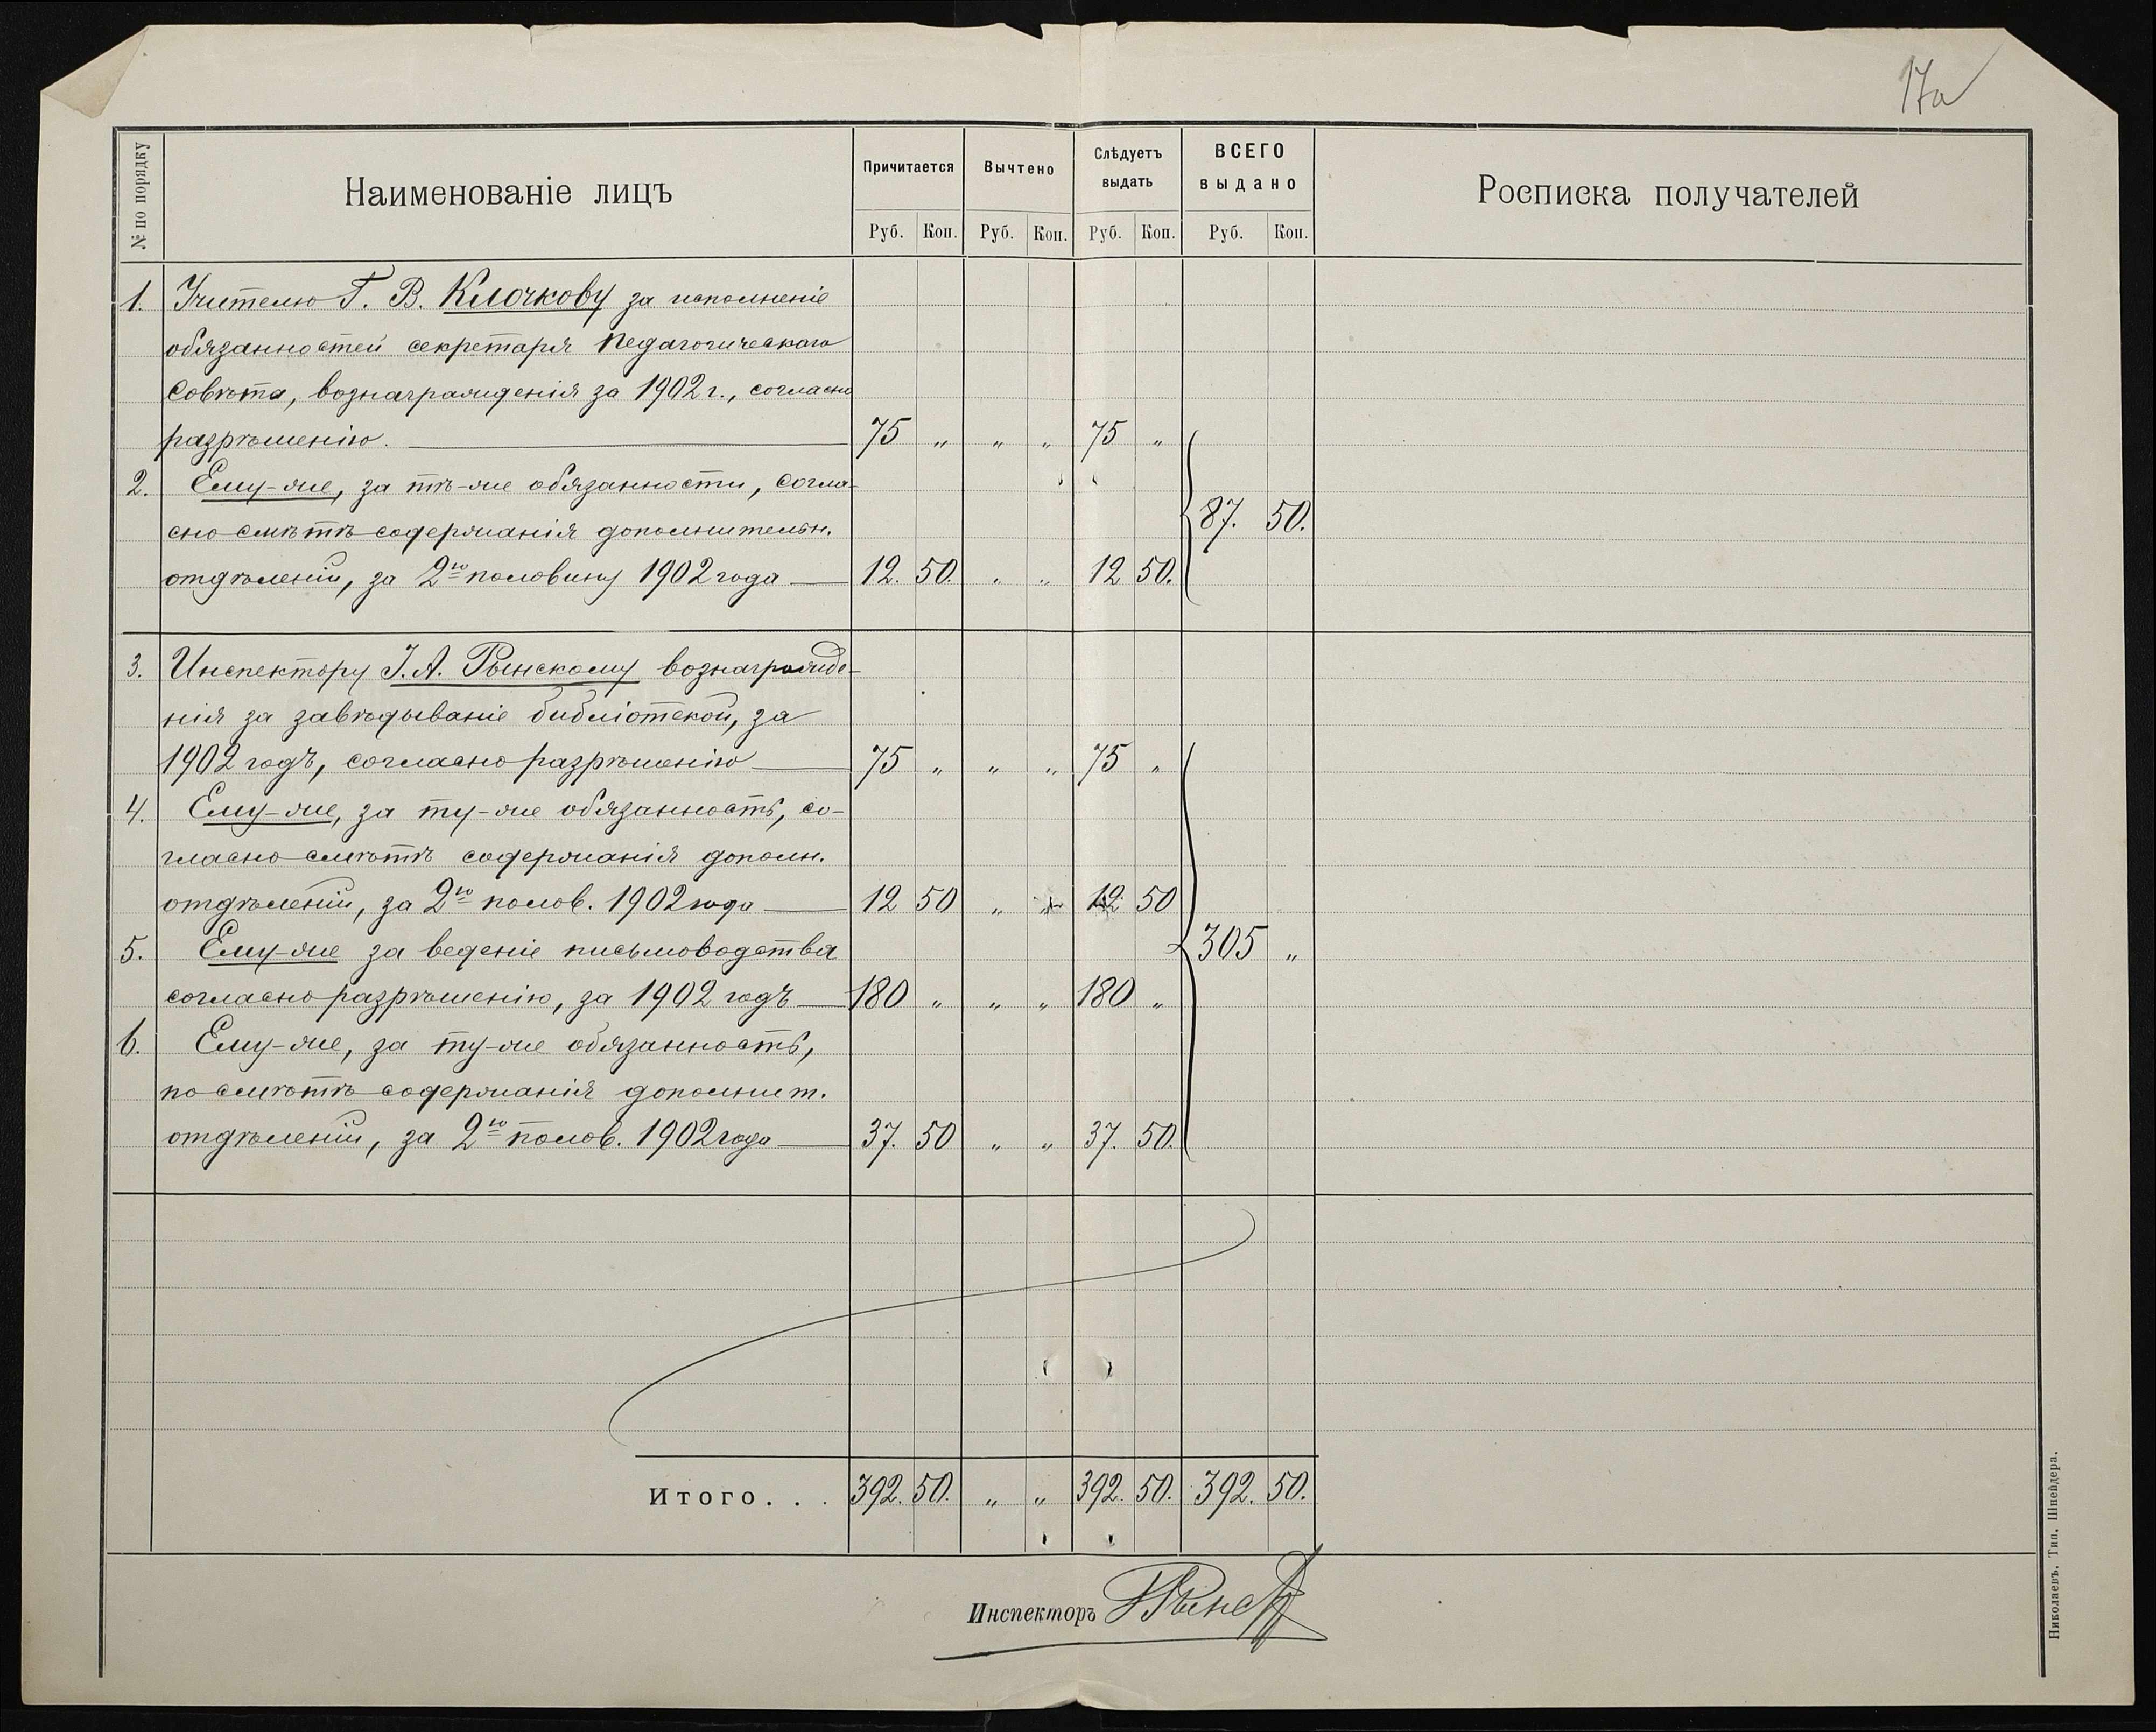 17а
№ по порядку
Наименованіе лицъ
Причитается
Вычтено
Слѣдуетъ выдать
ВСЕГО выдано
Росписка получателей
Руб. Коп. Руб. Коп. Руб. Коп. Руб. Коп.
1. Учителю Г. В. Клочкову за исполненіе
обязанностей секретаря Педагогическаго
Совѣта, вознагражденія за 1902 г., согласно
разрѣшенію. 75 „ „ „ 75 „
2. Ему-же, за тѣ-же обязанности, согла-
сно смѣтѣ содержанія дополнительн.
87. 50.
отдѣленій, за 2ю половину 1902 года 12. 50. „ „ 12 50.
3. Инспектору І. А. Рынскому вознагражде-
нія за завѣдываніе библіотекой, за
1902 годъ, согласно разрѣшенію 75 „ „ „ 75 „
4. Ему-же, за ту-же обязанность, со-
гласно смѣтѣ содержанія дополн.
отдѣленій, за 2ю полов. 1902 года 12 50 „ „ 12 50
5. Ему-же за веденіе письмоводства 305 „
согласно разрѣшенію, за 1902 годъ 180 „ „ „ 180 „
6. Ему-же, за ту-же обязанность,
по смѣтѣ содержанія дополнит.
отдѣленій, за 2ю полов. 1902 года 37. 50 „ „ 37. 50.
Итого. . . 392. 50. „ „ 392. 50. 392. 50.
Инспекторъ І Рынс
Николаевъ. Тип. Шнейдера.